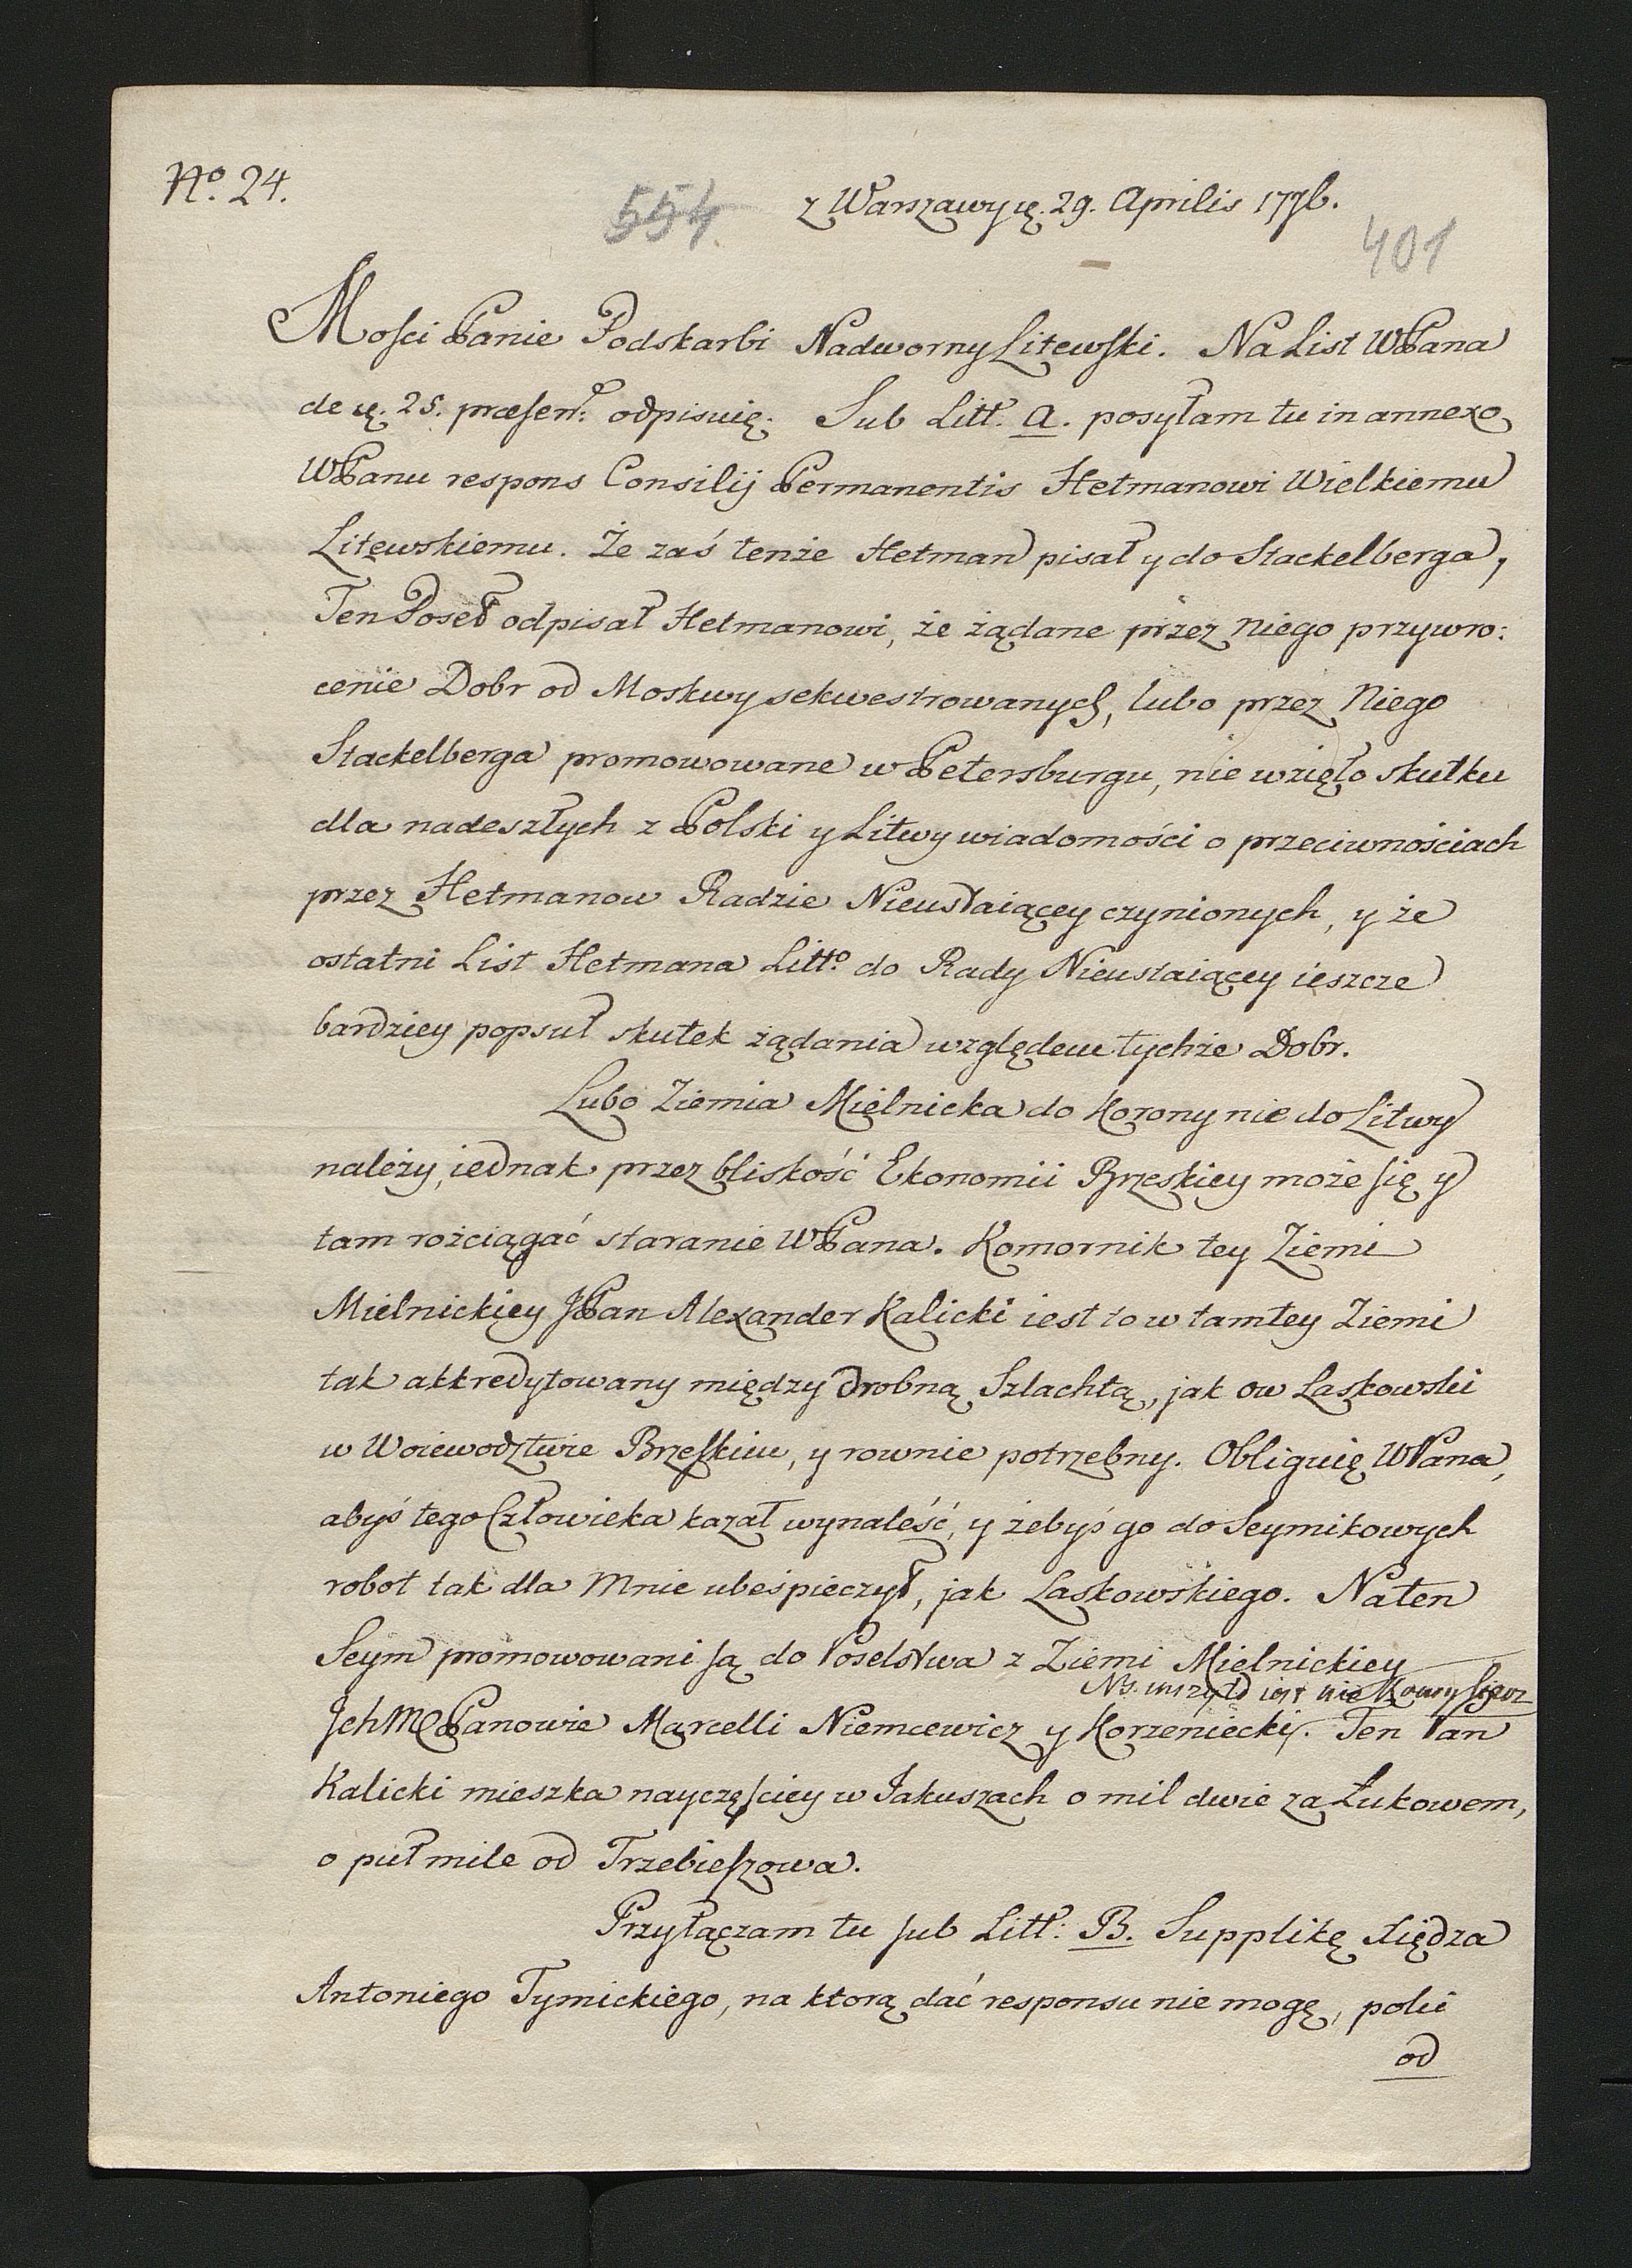 No. 24.
554
z Warszawy ę. 29. Aprilis 1776.
401
Mości Panie Podskarbi Nadworny Litewski. Na List WPana
de ę. 25. præsent: odpisuię. Sub Litt. A. posyłam tu in annexo
WPanu respons Consilij Permanentis Hetmanowi Wielkiemu
Litewskiemu. Że zaś tenże Hetman pisał y do Stackelberga,
Ten Poseł odpisał Hetmanowi, że żądane przez niego przywro:
cenie Dobr od Moskwy sekwestrowanych, lubo przez Niego
Stackelberga promowowane w Petersburgu, nie wzięło skutku
dla nadeszłych z Polski y Litwy wiadomości o przeciwnościach
przez Hetmanow Radzie Nieustaiącey czynionych, y że
ostatni List Hetmana Litto. do Rady Nieustaiącey ieszcze
bardziey popsuł skutek żądania względem tychże Dobr.
Lubo Ziemia Mielnicka do Korony nie do Litwy
należy, iednak przez bliskość Ekonomii Brzeskiey może się y
tam rozciągać staranie WPana. Komornik tey Ziemi
Mielnickiey JPan Alexander Kalicki iest to w tamtey Ziemi
tak akkredytowany między drobną Szlachtą, jak ow Laskowski
w Woiewodztwie Brzeskim, y rownie potrzebny. Obliguię WPana,
abyś tego Człowieka kazał wynaleść, y żebyś go do Seymikowych
robot tak dla Mnie ubeśpieczył, jak Laskowskiego. Na ten
Seym promowowani są do Poselstwa z Ziemi Mielnickiey
NB. umzyłd iest nie
JchMPanowie Marcelli Niemcewicz y Korzeniecki. Ten Pan
Kalicki mieszka nayczęściey w Jakuszach o mil dwie za Łukowem,
o puł mile od Trzebieszowa.
Przyłączam tu sub Litt: B. Supplikę Xiędza
Antoniego Tymickiego, na ktorą dać responsu nie mogę, poki
od